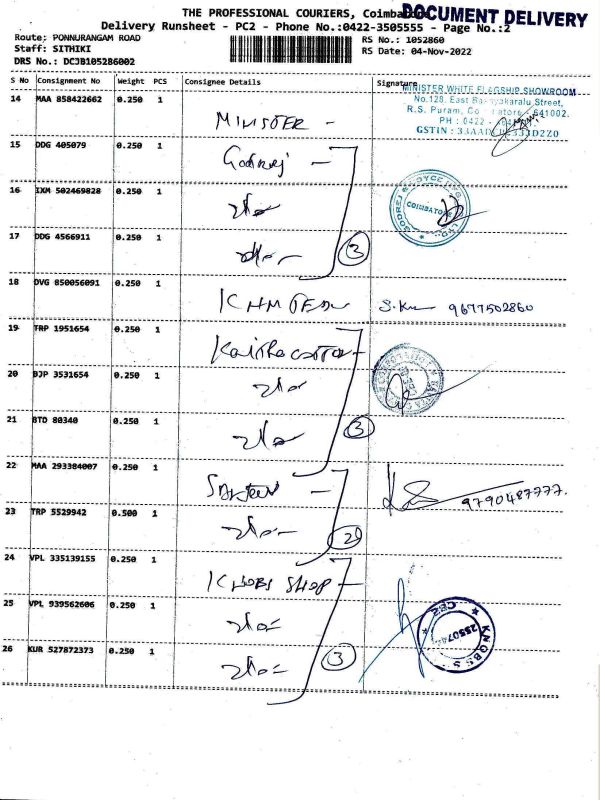 THE PROFESSIONAL COURIERS,
DOCUMENT DELIVERY
Delivery Runsheet - PC2 - Phone No.:0422-3505555 - Page No.:2
Route: PONNURANGAM ROAD
RS No.: 1052860
Staff: SITHIKI
RS Date: 04-Nov-2022
DRS No.: DCJB105286002
S No Consignment No Weight PCS Consignee Details Signature
MINISTER WHITE FLAGSHIP SHOWROOM
14 MAA 858422662 0.250 1
No.128, East Street,
R.S. Puram, 641002.
PH : 0422 -
GSTIN :
MINISTER -
15 DDG 405079 0.250 1
Godrej -
16 IXM 502469828 0.250 1
GODREJ & BOYCE
COIMBATORE
17 DDG 4566911 0.250 1
3
18 DVG 850056091 0.250 1
S.Km 9677502860
19 TRP 1951654 0.250 1
20 BJP 3531654 0.250 1
21 BTD 80340 0.250 1
3
22 MAA 293384007 0.250 1
9790487777.
23 TRP 5529942 0.500 1
2
24 VPL 335139155 0.250 1
KNOBS SHOP -
25 VPL 939562606 0.250 1
KNOBS
CBE
26 KUR 527872373 0.250 1
3